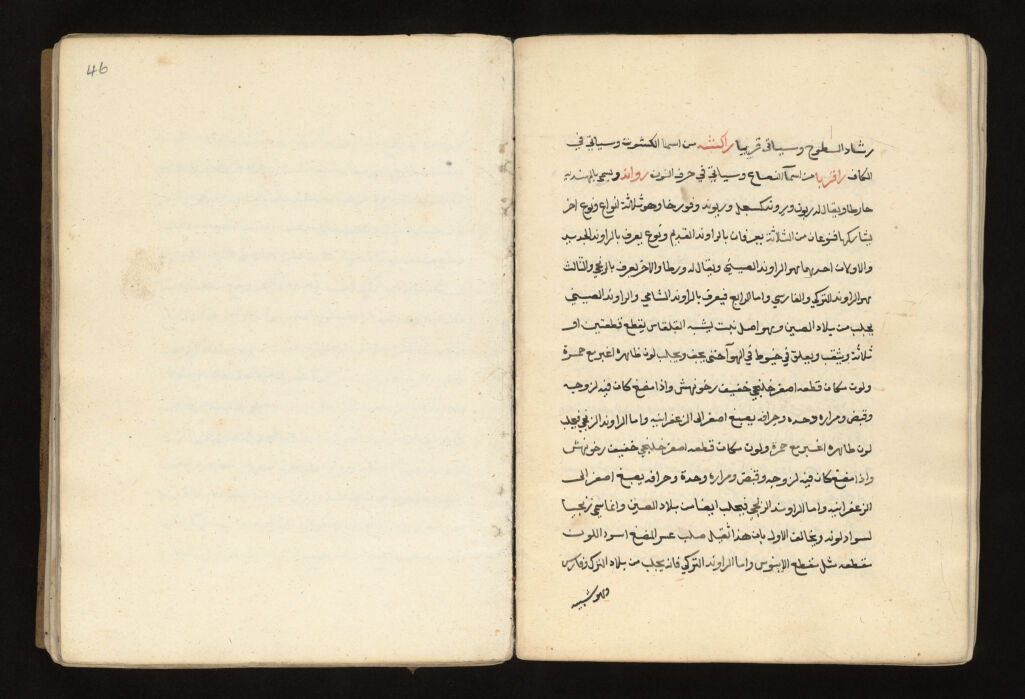 46
رشاد السطوح وسياتي قريبا راكشه من اسما الكشوت وسياتي في
الكاف رافريا من اسمآ النعناع وسياتي في حرف النون رواند ويسمى بالهنديه
ويقال له ريون وبروند كسجل وريوند وهو ثلاثة انواع ونوع اخر
يشاركها فنوعان من الثلاثة يعرفان بالراوند القديم ونوع يعرف بالراوند الجديد
والاولان احدهما هو الراوند الصيني ويقال له والاخر يعرف بالزنجي والثالث
هو الراوند التركي والفارسي واما الرابع فيعرف بالراوند الشامي والراوند الصيني
يجلب من بلاد الصين وهو اصل نبت يشبه القلقاس يقطع قطعتين او
ثلاثة ويثقب ويعلق في خيوط في الهوآ حتى يجف ويجلب لون ظاهره اغبر مع حمرة
ولون مكان قطعه اصفر خلنجي خفيف رخو نهش واذا مضغ كان فيه لزوجه
وقبض ومراره وحده وحرافه يصبغ اصفر الى الزعفرانيه واما الراوند الزنجي فيجلب
لون ظاهره اغبر مع حمرة ولون مكان قطعه اصفر خلنجي خفيف رخو نهش
واذا مضغ كان فيه لزوجه وقبض ومراره وحدة وحرافه يصبغ اصفر الى
الزعفرانيه واما الراوند الزنجي فيجلب ايضا من بلاد الصين وانما سمي زنجيا
لسواد لونه ويخالف الاول بان هذا ثقيل صلب عسر المضغ اسود اللون
مقطعه مثل مقطع الابنوس واما الراوند التركي فانه يجلب من بلاد الترك وفارس
وهو شبيه